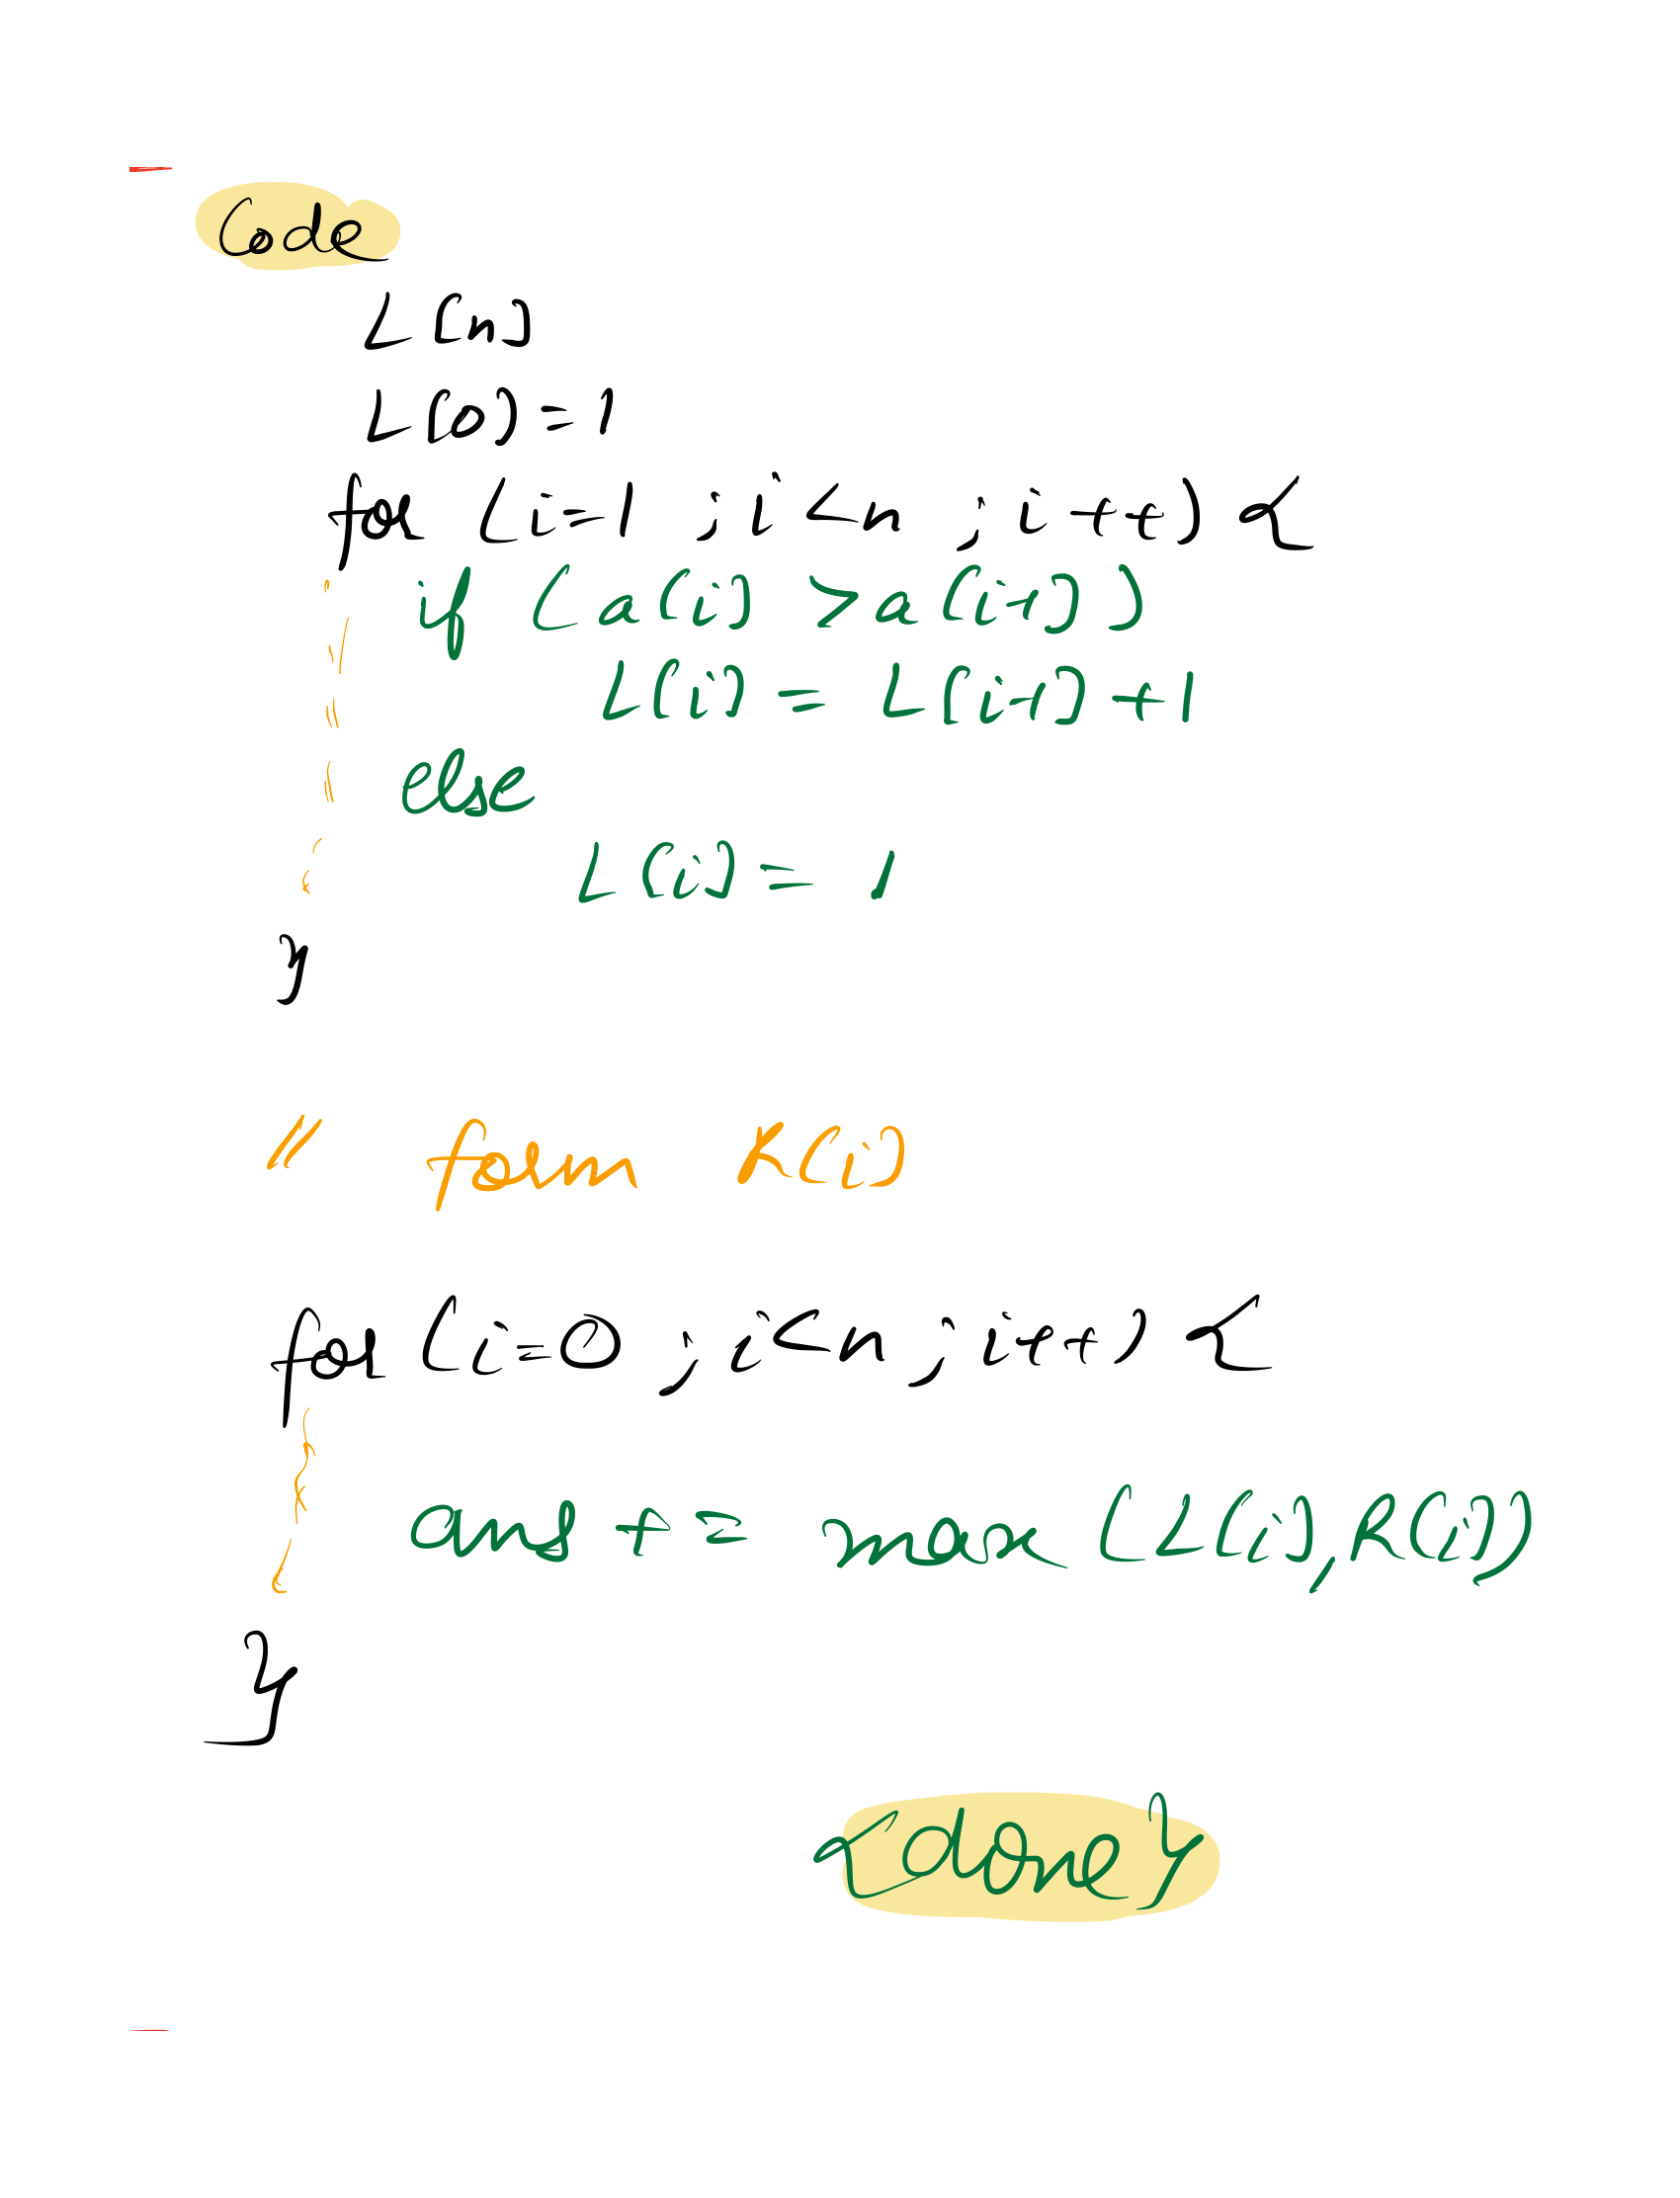 Code
L[n]
L[0] = 1
for (i=1 ; i<n ; i++) {
if (a[i] > a[i-1])
L[i] = L[i-1] + 1
else
L[i] = 1
}
// form R[i]
for (i=0 ; i<n ; i++) {
ans += max (L[i], R[i])
}
{done}